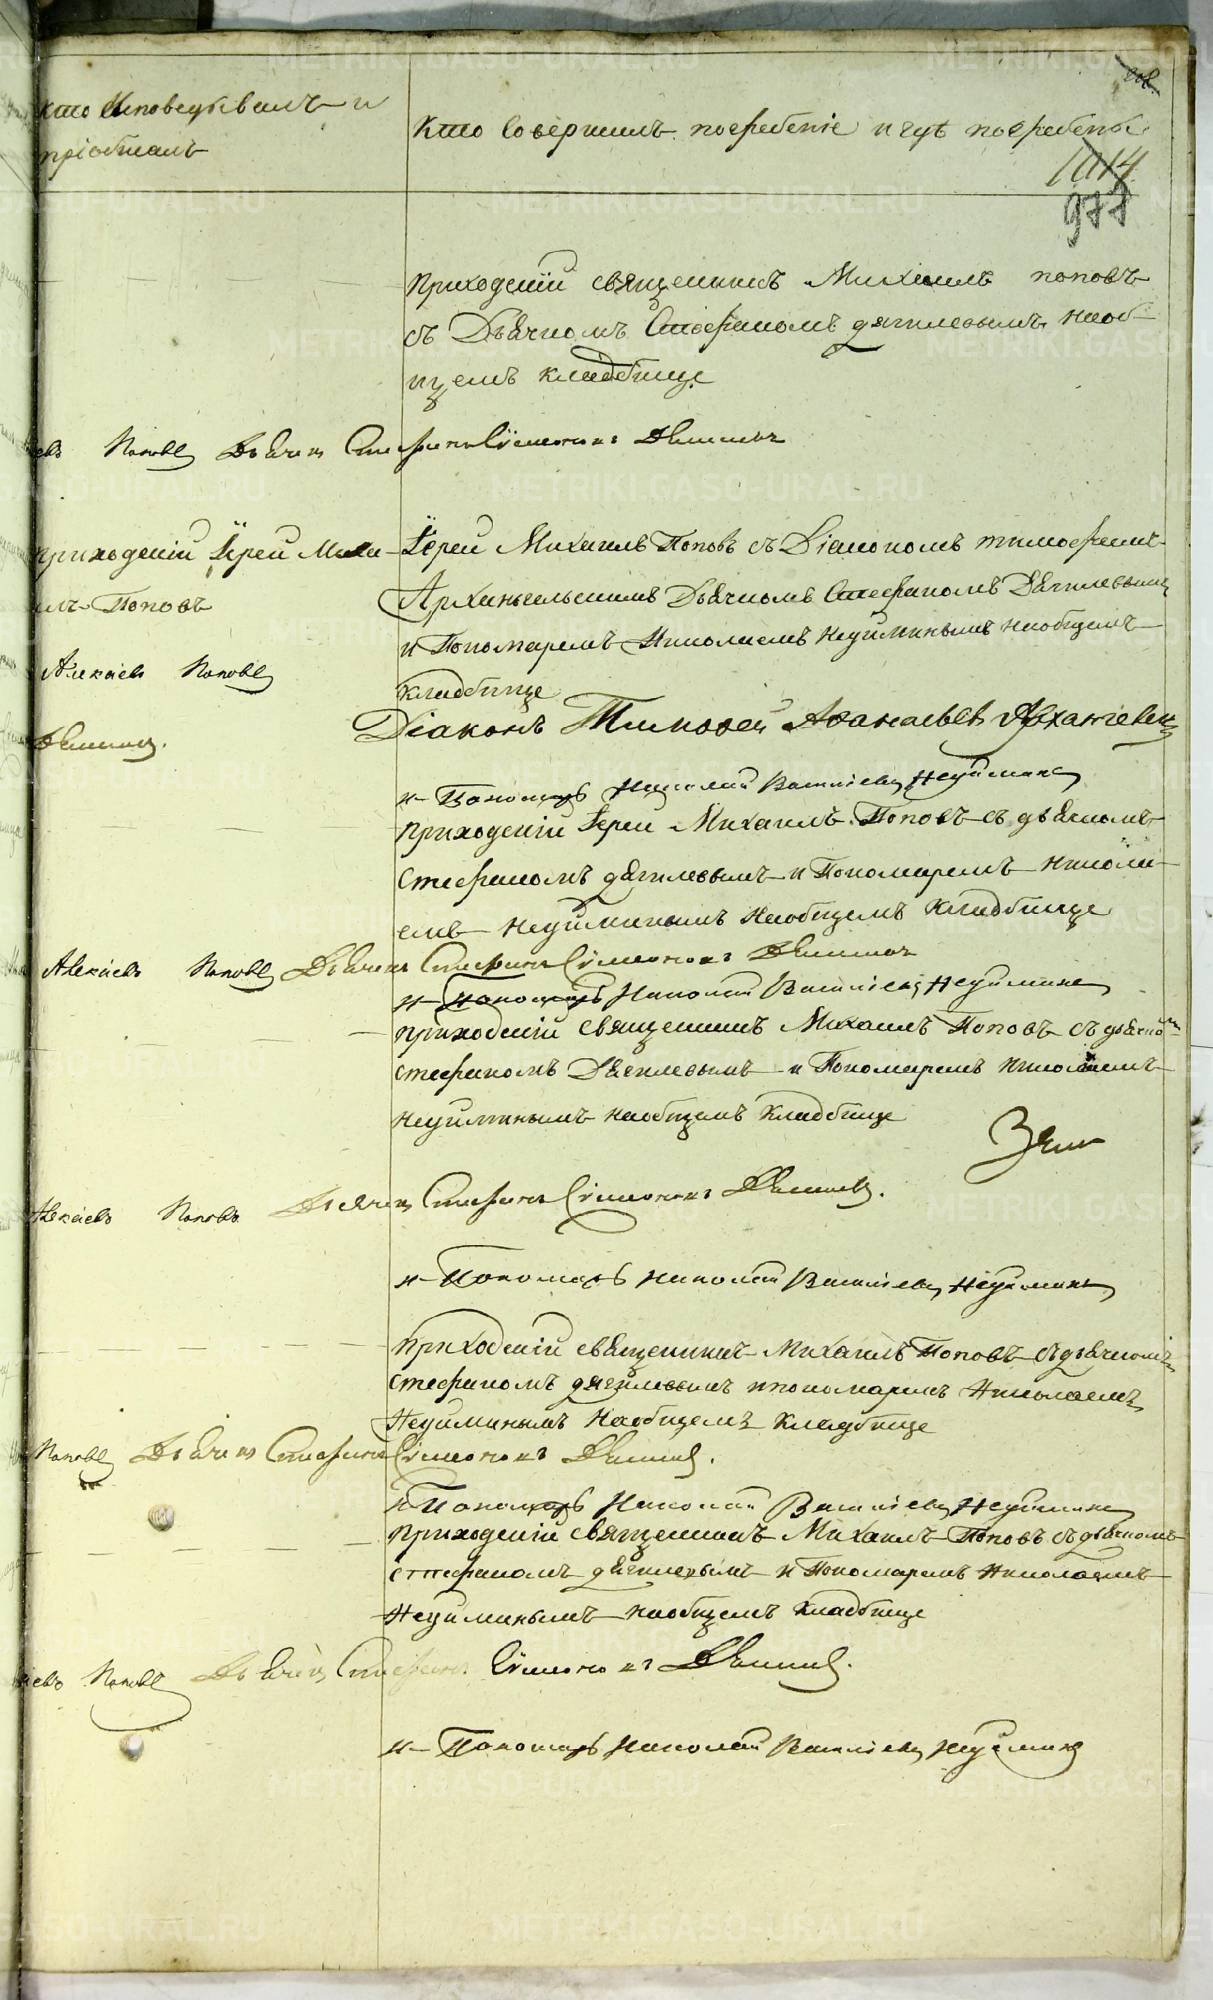 кто Исповедывалъ и
пріобщалъ
Кто Совершилъ погребеніе и гдѣ погребены
1014
977
Приходскій священникъ Михаилъ поповъ
съ Дьячкомъ Стефаномъ дягилевымъ наоб-
щемъ кладбище
Поповъ Дьячекъ Стефанъ Сѵмеоновъ Дягилевъ
приходскій Іерей Миха-
илъ Поповъ
Іерей Михаилъ Поповъ съ Діакономъ тимофеемъ
Архангельскимъ Дьячкомъ Стефаномъ Дягилевымъ
и Пономаремъ Николаемъ Неуйминымъ наобщемъ
кладбище
Алексіевъ Поповъ
Дягилевъ.
Діаконъ Тимоѳей Аѳанасьевъ Архангельск
и Пономарь Николай Васильевъ Неуйминъ
приходскій Іереи Михаилъ Поповъ съ дьячкомъ
Стефаномъ дягилевымъ и Пономаремъ Никола-
емъ Неуйминымъ Наобщемъ Кладбище
Алексіевъ Поповъ Дьячекъ Стефанъ Сѵмеоновъ Дягилевъ
и Пономарь Николай Васильевъ Неуйминъ
приходскій священникъ Михаилъ Поповъ съ дьячкомъ
стефаномъ Дягилевымъ и Пономаремъ Николаемъ
Неуйминымъ наобщемъ Кладбище
Алексіевъ Поповъ Дьячекъ Стефанъ Сѵмеоновъ Дягилевъ.
и Пономарь Николай Васильевъ Неуйминъ
приходскій священникъ Михаилъ Поповъ съ дьячкомъ
Стефаномъ дягилевымъ ипономаремъ Николаемъ
Неуйминымъ Наобщемъ Кладбище
Поповъ Дьячекъ Стефанъ Сѵмеоновъ Дягилевъ.
и Пономарь Николай Васильевъ Неуйминъ
приходскій священникъ Михаилъ Поповъ съ дьячкомъ
стефаномъ дягилевымъ и Пономаремъ Николаемъ
Неуйминымъ наобщемъ кладбище
Поповъ Дьячекъ Стефанъ Сѵмеоновъ Дягилевъ.
и Пономарь Николай Васильевъ Неуйминъ
METRIKI.GASO-URAL.RU